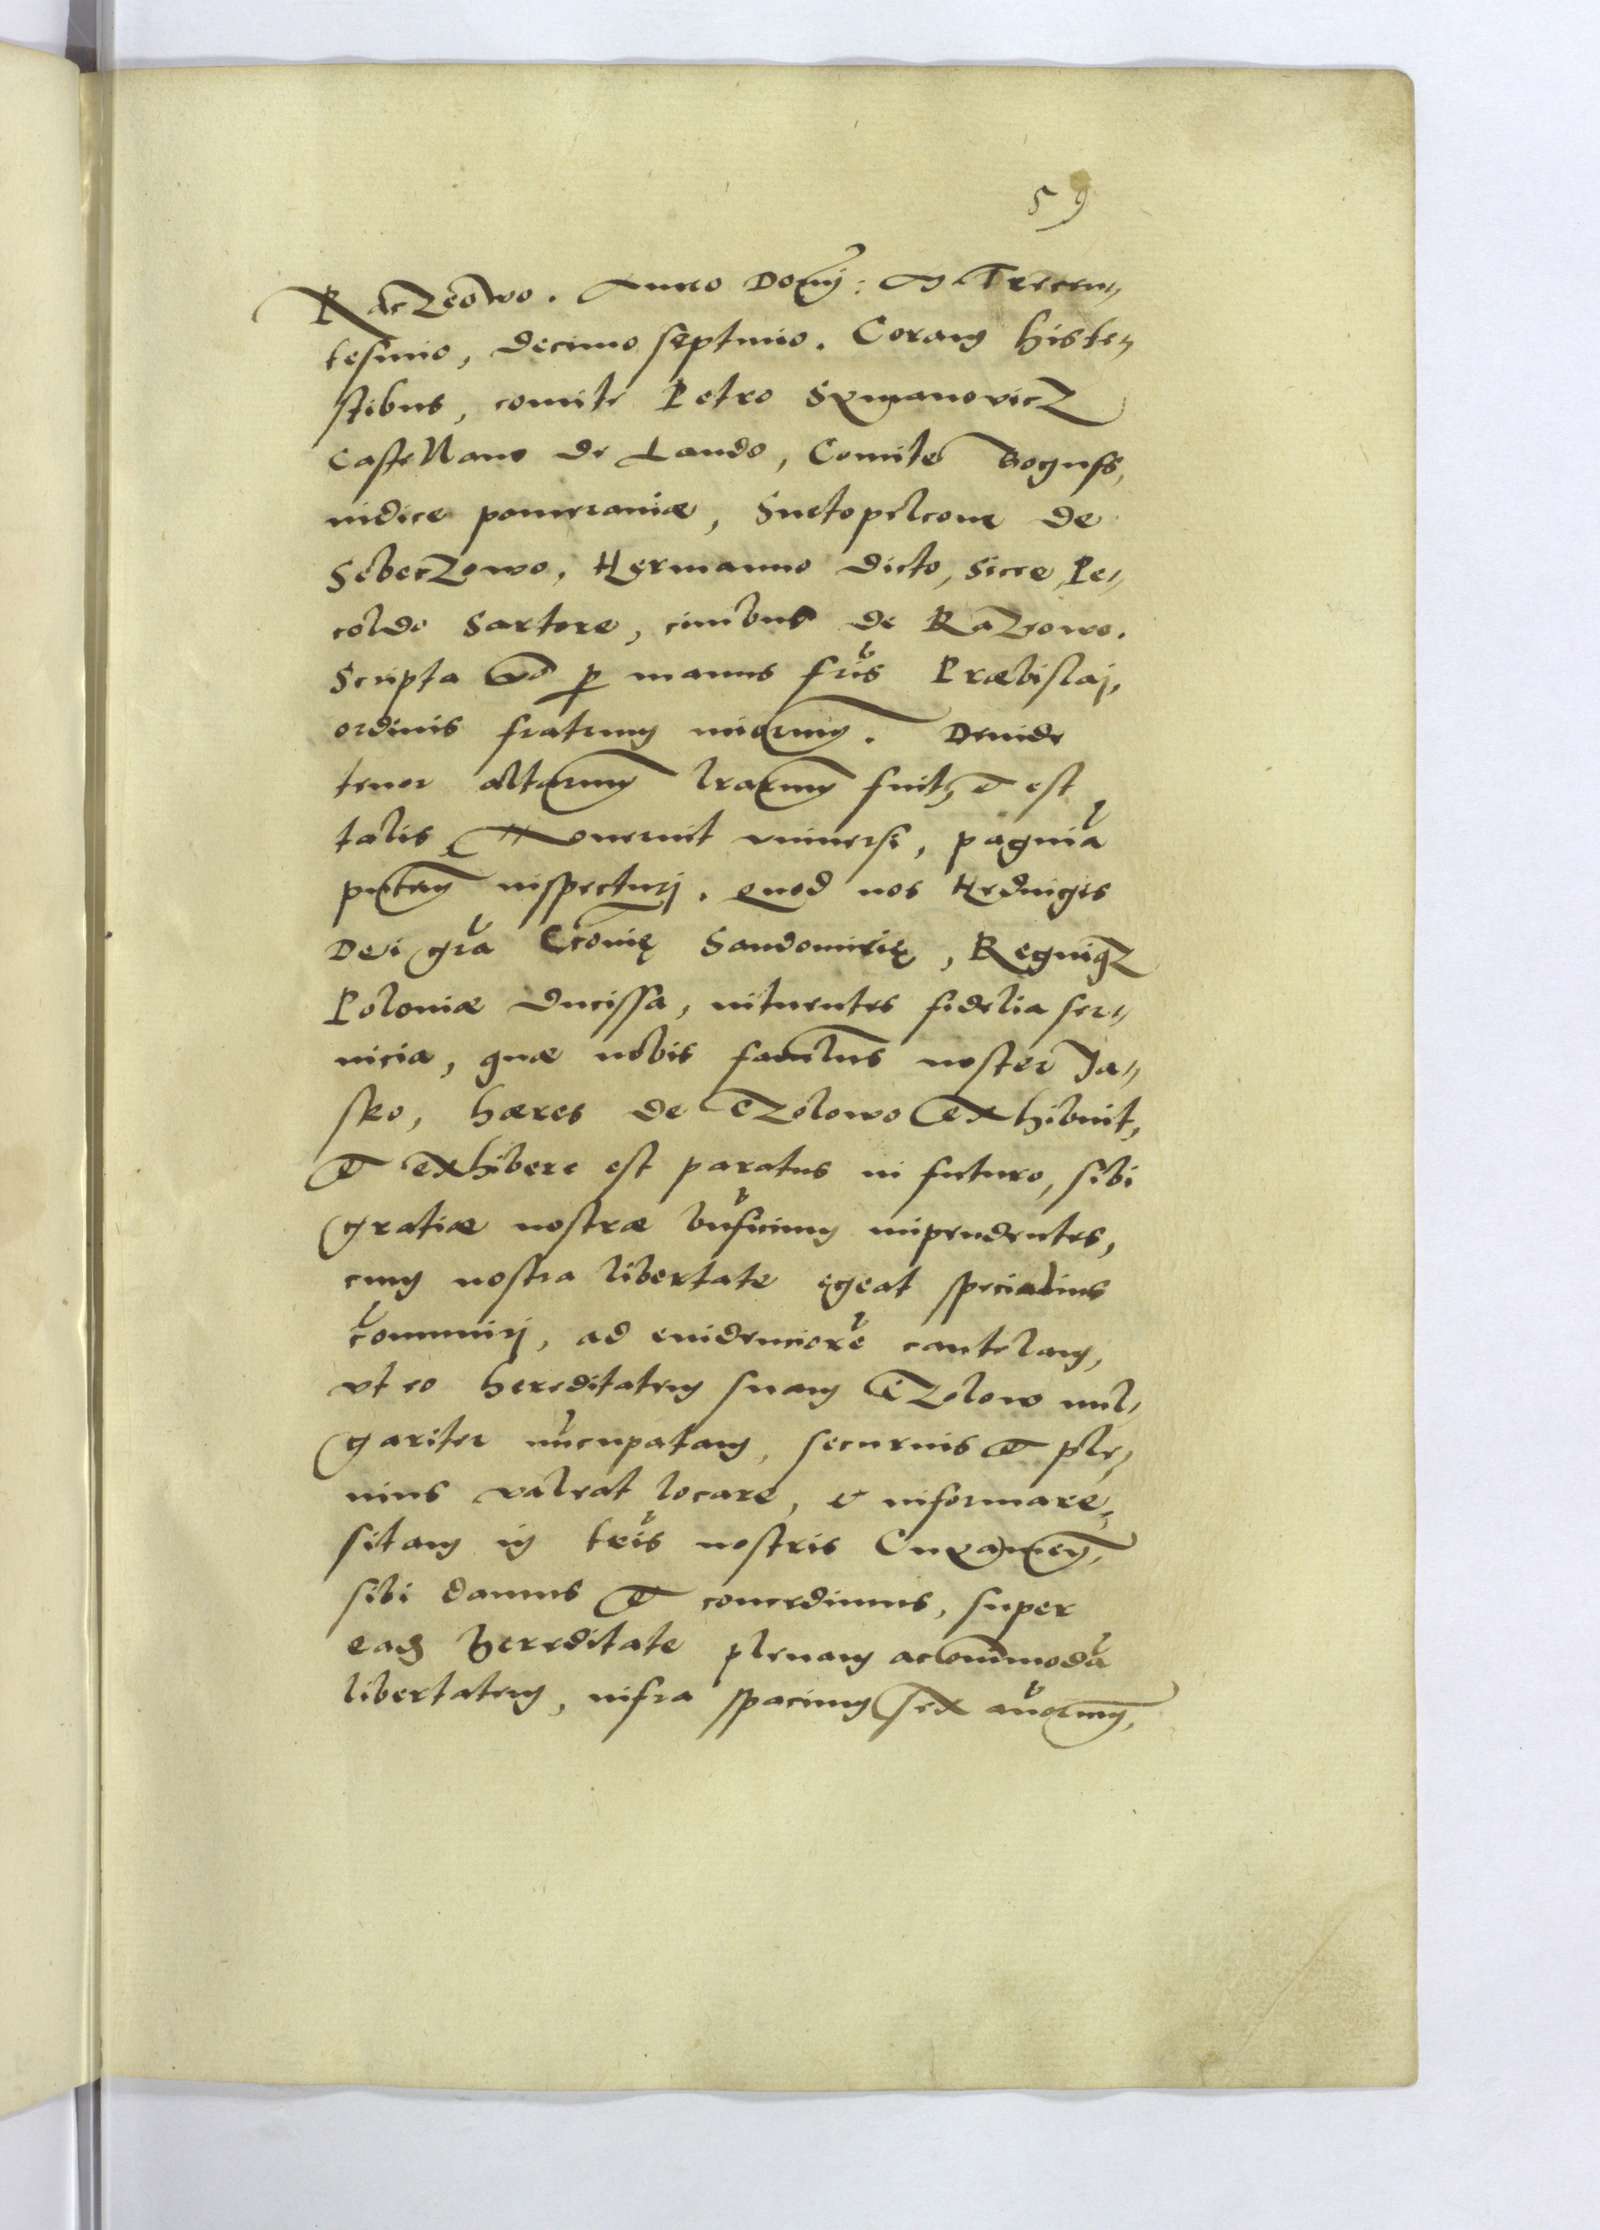 59
RacZeowo. Anno Domj: M Trecen„
tesimo, decimo septimo. Coram his te„
stibus, comite Petro SymanovicZ
Castellano de Lando, Comite Boguss,
iudice pomeraniæ, Suetopelcone de
SebecZowo, Hermanno dicto, Sicce, Pe„
coldo Sartore, ciuibus de RaZeowo.
Scripta p manus fris Præbislaj,
ordinis fratrum miorum. Deinde
tenor altarum lrarum fuit, et est
talis Nouerint vniuersi, pagina
pntem inspecturj. Quod nos Heduigis
Dei gra Cronię Sandomirię, RegniqZ
Poloniæ Ducissa, intuentes fidelia ser„
uicia, quæ nobis famulus noster Ja„
sko, hæres de CZolowo exhibuit,
et exhibere est paratus in futuro, sibi
gratiæ nostræ bnficium impendentes,
cum nostra libertate egeat specialius
communirj, ad euidenciore cautelam,
vt eo hereditatem suam CZolow uul„
gariter nucupatam, securius et ple„
nius valeat locare, et informare,
sitam in tris nostris
sibi damus et concedimus, super
eadz Hereditate plenam accommoda
libertatem, infra spacium sex anorum,